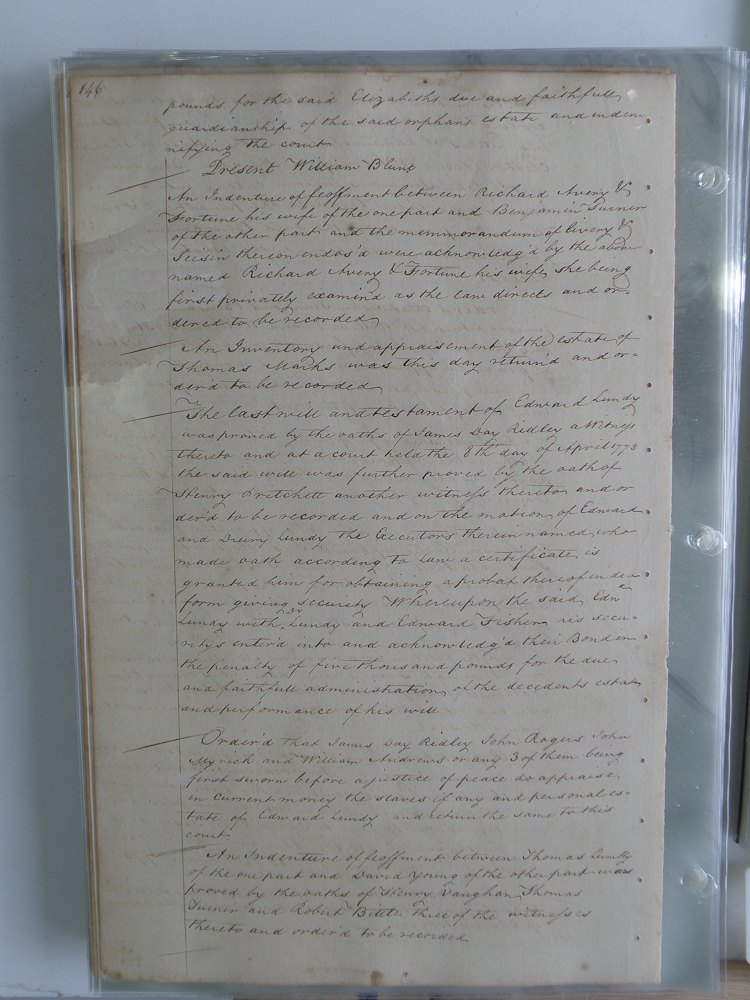 146
pounds for the said Elizabeths due and faithfull
guardianship of the said orphans estate and indem
nifying the court
Present William Blunt
An Indenture of feoffment between Richard Avery &
Fortune his wife of the one part and Benjamin Turner
of the other part and the memmorandum of livery &
Seisin thereon endos'd were acknowledg'd by the above
named Richard Avery & Fortune his wife, she being
first privately examin'd as the law directs and or-
dered to be recorded
An Inventory and appraisement of the estate of
Thomas Marks was this day return'd and or=
der'd to be recorded
The last will and testament of Edward Lundy
was proved by the oaths of James Day Ridley a Witness
thereto and at a court held the 8th day of April 1773
the said will was further proved by the oath of
Henry Pritchett another witness thereto and or
der'd to be recorded and on the motion of Edward
and Drury Lundy the Executors therein named, who
made oath according to Law a certificate is
granted him for obtaining a probat thereof in due
form giving security Whereupon the said Edwd
Lundy with Dr Lundy and Edward Fisher his secu-
ritys enter'd into and acknowledg'd their Bond in
the penalty of five thousand pounds for the due
and faithfull administration of the decedents estate
and performance of his will
Order'd that James Day Ridley John Rogers John
Myrick and William Andrews or any 3 of them being
first sworn before a justice of peace do appraise
in current money the slaves if any and personal es-
tate of Edward Lundy and return the same to this
court
An Indenture of feoffment between Thomas
of the one part and David Young of the other part was
proved by the oaths of Henry Vaughan Thomas
Turner and Robert Bittle three of the witnesses
thereto and order'd to be recorded